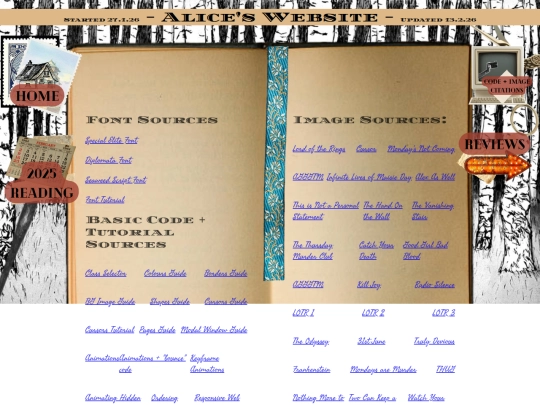 STARTED 27.1.26 - ALICE'S WEBSITE - UPDATED 13.2.26
HOME
2025
READING
CODE + IMAGE
CITATIONS
REVIEWS
FONT SOURCES
Special Elite Font
Diplomata Font
Seaweed Script Font
Font Tutorial
BASIC CODE +
TUTORIAL
SOURCES
Class Selector Colours Guide Borders Guide
BG Image Guide Shapes Guide Cursors Guide
Cursors Tutorial Pages Guide Modal Window Guide
Animations Animations + "bounce" Keyframe
code Animations
Animating Hidden Ordering Responsive Web
IMAGE SOURCES:
Lord of the Rings Cursors Monday's Not Coming
AGGGTM Infinite Lives of Maisie Day Alex As Well
This is Not a Personal The Hand On The Vanishing
Statement the Wall Stair
The Thursday Catch Your Good Girl Bad
Murder Club Death Blood
AGGGTM Kill Joy Radio Silence
LOTR 1 LOTR 2 LOTR 3
The Odyssey 31st June Truly Devious
Frankenstein Mondays are Murder THUG
Nothing More to Two Can Keep a Watch Your